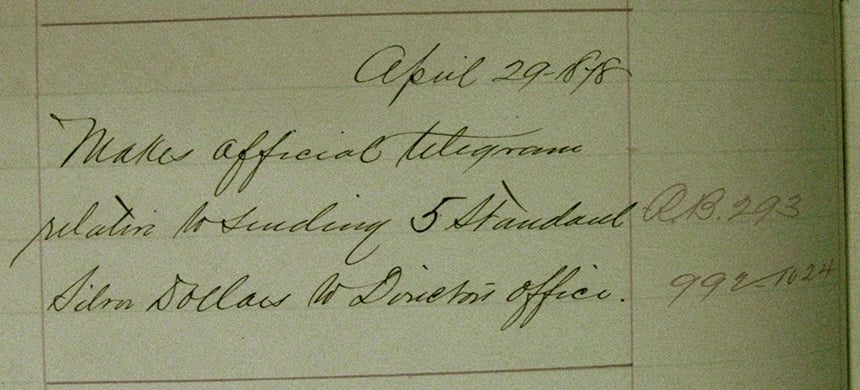 April 29-1878
Makes official telegram
relative to sending 5 Standard
Silver Dollars to Director's office.
R.B. 293
992-to 24